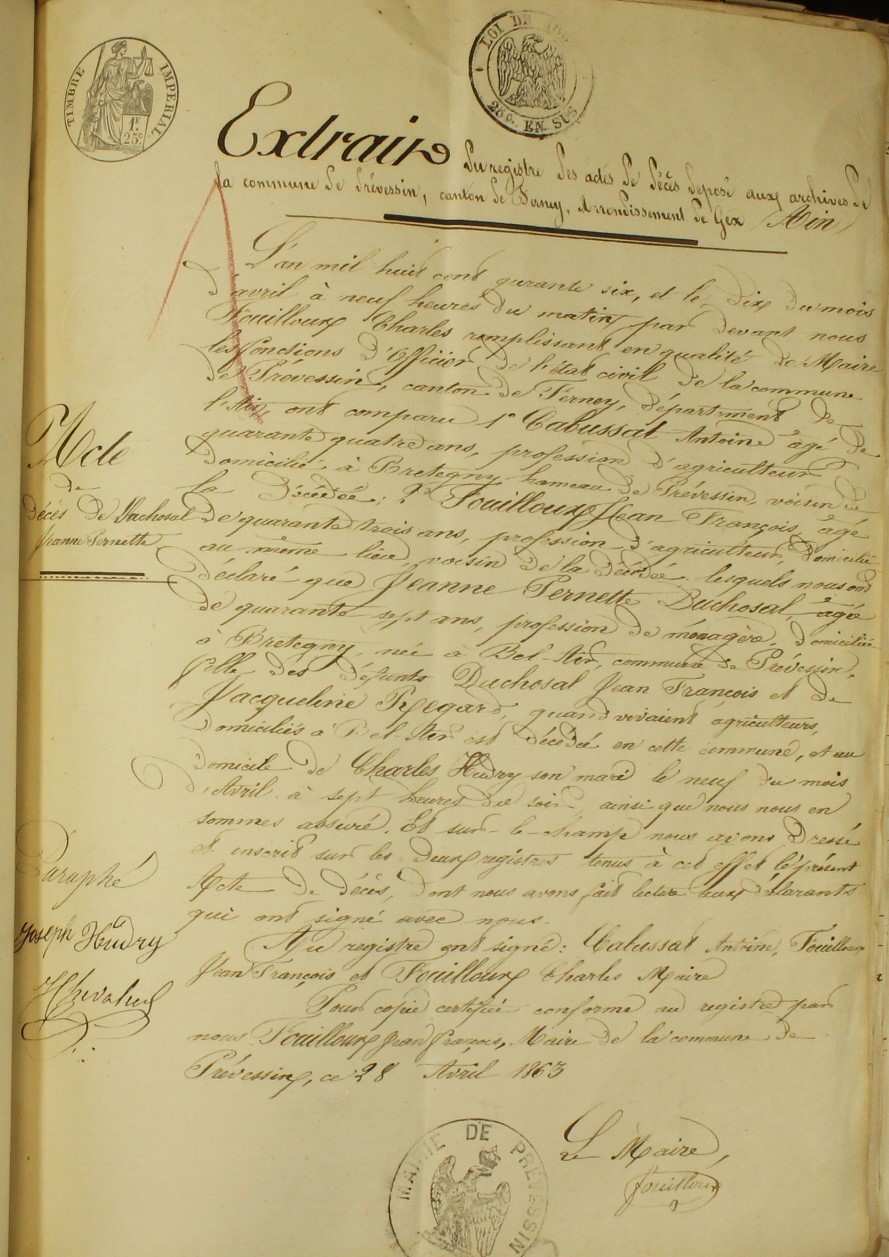 TIMBRE IMPERIAL
1F.
25c.
LOI DE
25c. EN SUS
Extrait du registre des actes de décès déposé aux archives de
la commune de Prévessin, canton de Ferney, Arrondissement de Gex (Ain)
L'an mil huit cent quarante six, et le dix du mois
d'avril à neuf heures du matin, par devant nous
Fouilloux Charles remplissant en qualité de Maire
les fonctions d'Officier de l'état civil de la commune
de Prévessin, canton de Ferney, département de
l'Ain, ont comparu 1° Cabussat Antoine âgé de
quarante quatre ans, profession d'agriculteur
domicilié à Bretegny hameau de Prévessin, voisin de
la décédée; 2° Fouilloux Jean François, âgé
de quarante trois ans, profession d'agriculteur, domicilié
au même lieu, voisin de la décédée, lesquels nous ont
déclaré que Jeanne Pernette Duchosal, âgée
de quarante sept ans, profession de ménagère, domiciliée
à Bretegny, née à Bel Air, commune de Prévessin,
fille des défunts Duchosal Jean François et de
Jacqueline Regard, quand vivaient agriculteurs,
domiciliés à Bel Air est décédée en cette commune, et au
domicile de Charles Hudry son mari le neuf du mois
d'Avril à sept heures du soir ainsi que nous nous en
sommes assuré. Et sur-le-champ nous avons dressé
et inscrit sur les deux registres tenus à cet effet le présent
Acte de décès, dont nous avons fait lecture aux déclarants
qui ont signé avec nous.
Au registre ont signé: Cabussat Antoine, Fouilloux
Jean François et Fouilloux Charles Maire
Pour copie certifiée conforme au registre par
nous Fouilloux Jean françois, Maire de la commune de
Prévessin, ce 28 Avril 1863
Acte
de
décès de Duchosal
Jeanne Pernette
Paraphé
Joseph Hudry
Le Maire,
fouilloux
MAIRIE DE PREVESSIN